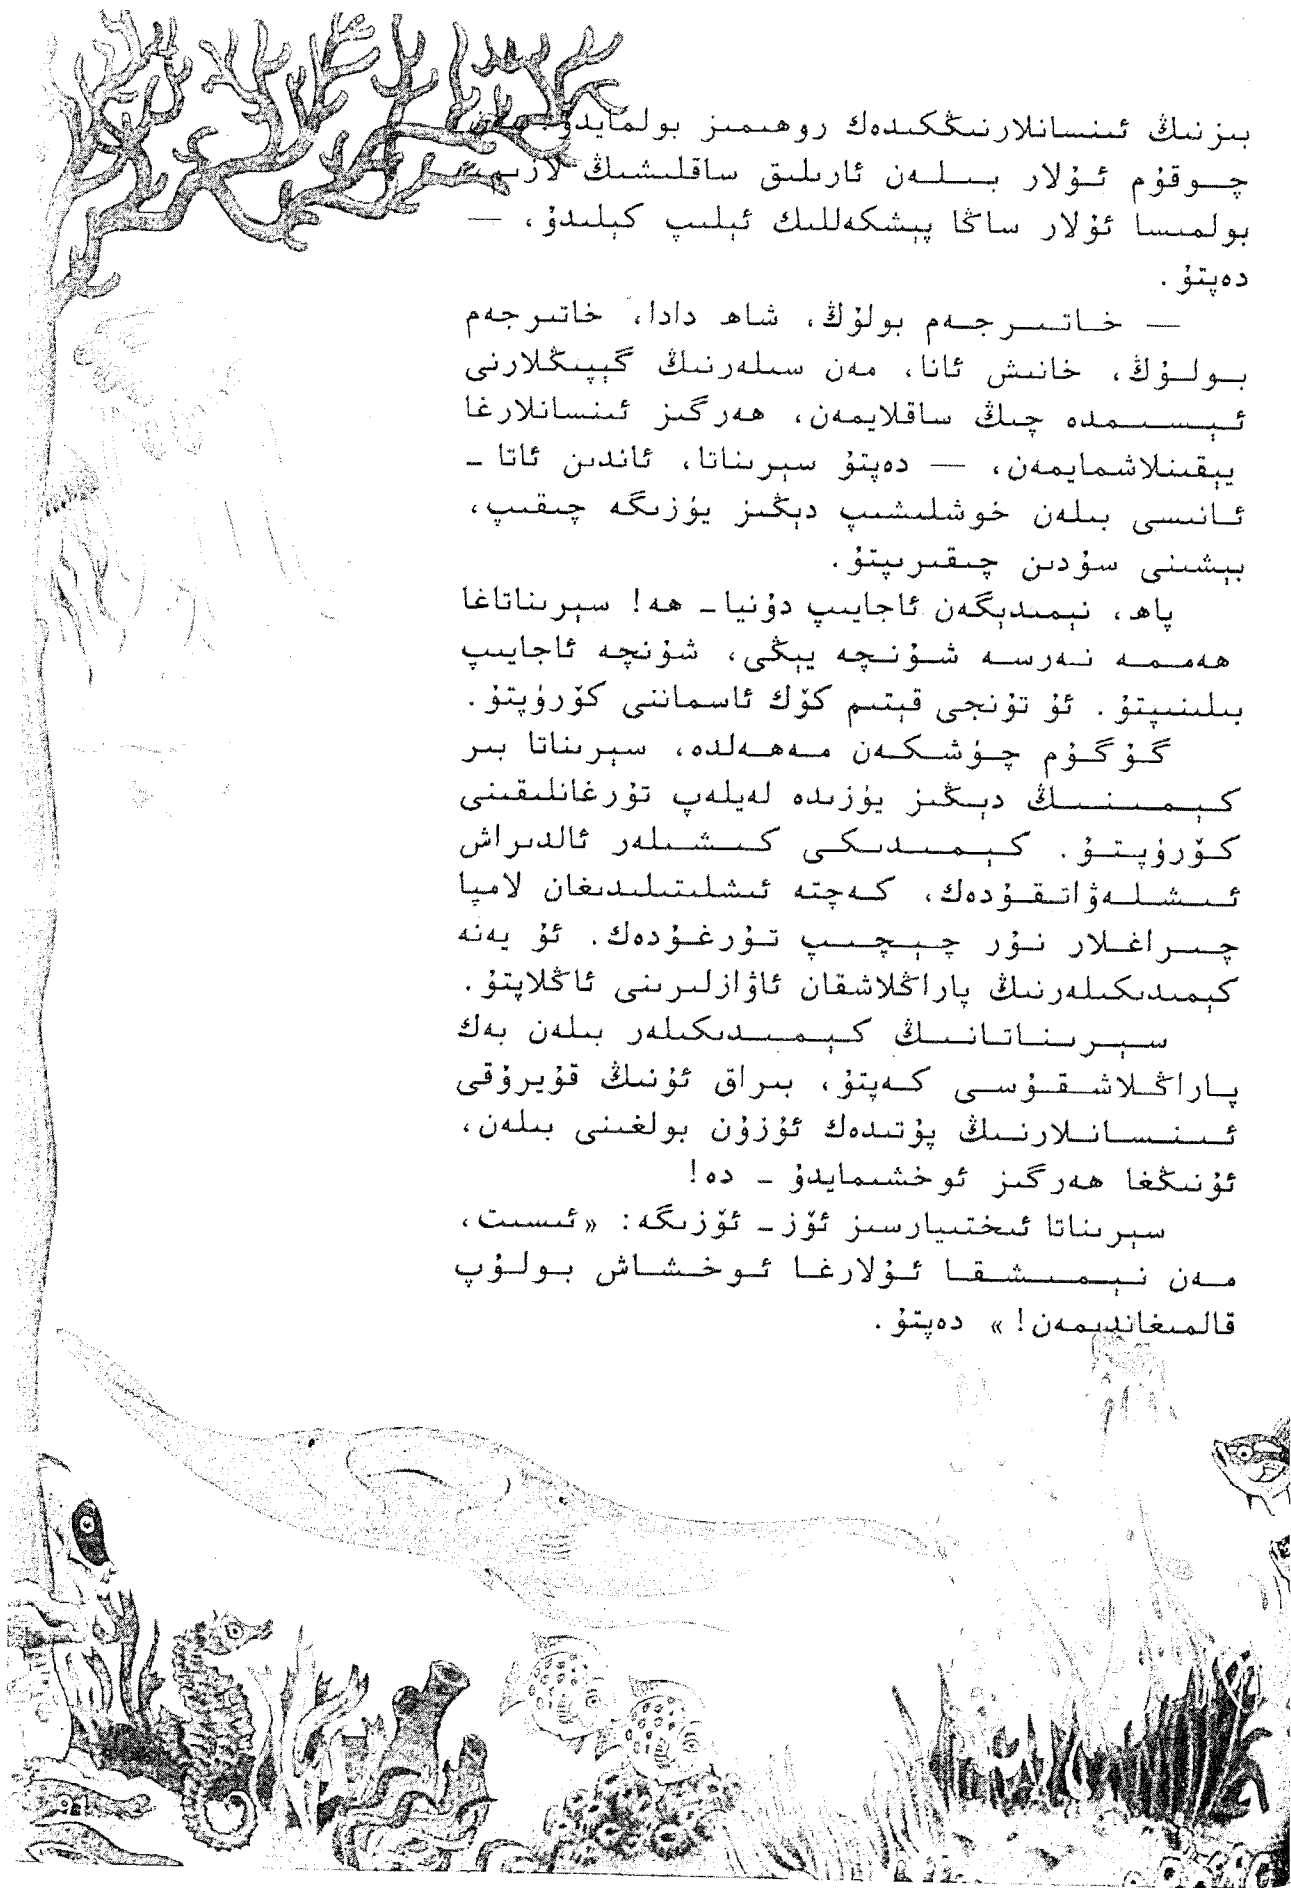 بىزنىڭ ئىنسانلارنىڭكىدەك روھىمىز بولمايدۇ.
چوقۇم ئۇلار بىلەن ئارىلىق ساقلىشىڭ لازىم،
بولمىسا ئۇلار ساڭا پېشكەللىك ئېلىپ كېلىدۇ، —
دەپتۇ.
— خاتىرجەم بولۇڭ، شاھ دادا، خاتىرجەم
بولۇڭ، خانىش ئانا، مەن سىلەرنىڭ گېپىڭلارنى
ئېسىمدە چىڭ ساقلايمەن، ھەرگىز ئىنسانلارغا
يېقىنلاشمايمەن، — دەپتۇ سېرىناتا، ئاندىن ئاتا ـ
ئانىسى بىلەن خوشلىشىپ دېڭىز يۈزىگە چىقىپ،
بېشىنى سۇدىن چىقىرىپتۇ.
پاھ، نېمىدېگەن ئاجايىپ دۇنيا ـ ھە! سېرىناتاغا
ھەممە نەرسە شۇنچە يېڭى، شۇنچە ئاجايىپ
بىلىنىپتۇ. ئۇ تۇنجى قېتىم كۆك ئاسماننى كۆرۈپتۇ.
گۇگۇم چۈشكەن مەھەلدە، سېرىناتا بىر
كېمىنىڭ دېڭىز يۈزىدە لەيلەپ تۇرغانلىقىنى
كۆرۈپتۇ. كېمىدىكى كىشىلەر ئالدىراش
ئىشلەۋاتقۇدەك، كەچتە ئىشلىتىلىدىغان لامپا
چىراغلار نۇر چېچىپ تۇرغۇدەك. ئۇ يەنە
كېمىدىكىلەرنىڭ پاراڭلاشقان ئاۋازلىرىنى ئاڭلاپتۇ.
سېرىناتانىڭ كېمىدىكىلەر بىلەن بەك
پاراڭلاشقۇسى كەپتۇ، بىراق ئۇنىڭ قۇيرۇقى
ئىنسانلارنىڭ پۇتىدەك ئۇزۇن بولغىنى بىلەن،
ئۇنىڭغا ھەرگىز ئوخشىمايدۇ ـ دە!
سېرىناتا ئىختىيارسىز ئۆز ـ ئۆزىگە: «ئىسىت،
مەن نېمىشقا ئۇلارغا ئوخشاش بولۇپ
قالمىغاندىمەن!» دەپتۇ.